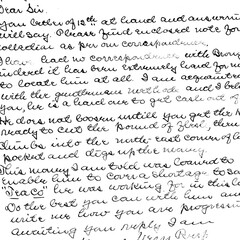 Dear Sir.
Your letter of 12th at hand and
will say. Please find enclosed note for
collection as per our correspondence,
I have had no correspondence with
indeed it has been extremely hard for me
to locate him at all. I am acquainted
with the gentleman and I
you, he is a hard one to get cash out of
He does not loosen untill you get the
ready to cut the pound of flesh, then
climbs into the north east corner of
pocket and digs up the money.
This money I am even was loaned to
enable him to cover a shortage to
"Tea Co" he was working for in this
Do the best you can with him and
write me how you are progressing
awaiting your reply I am
Yours Resp